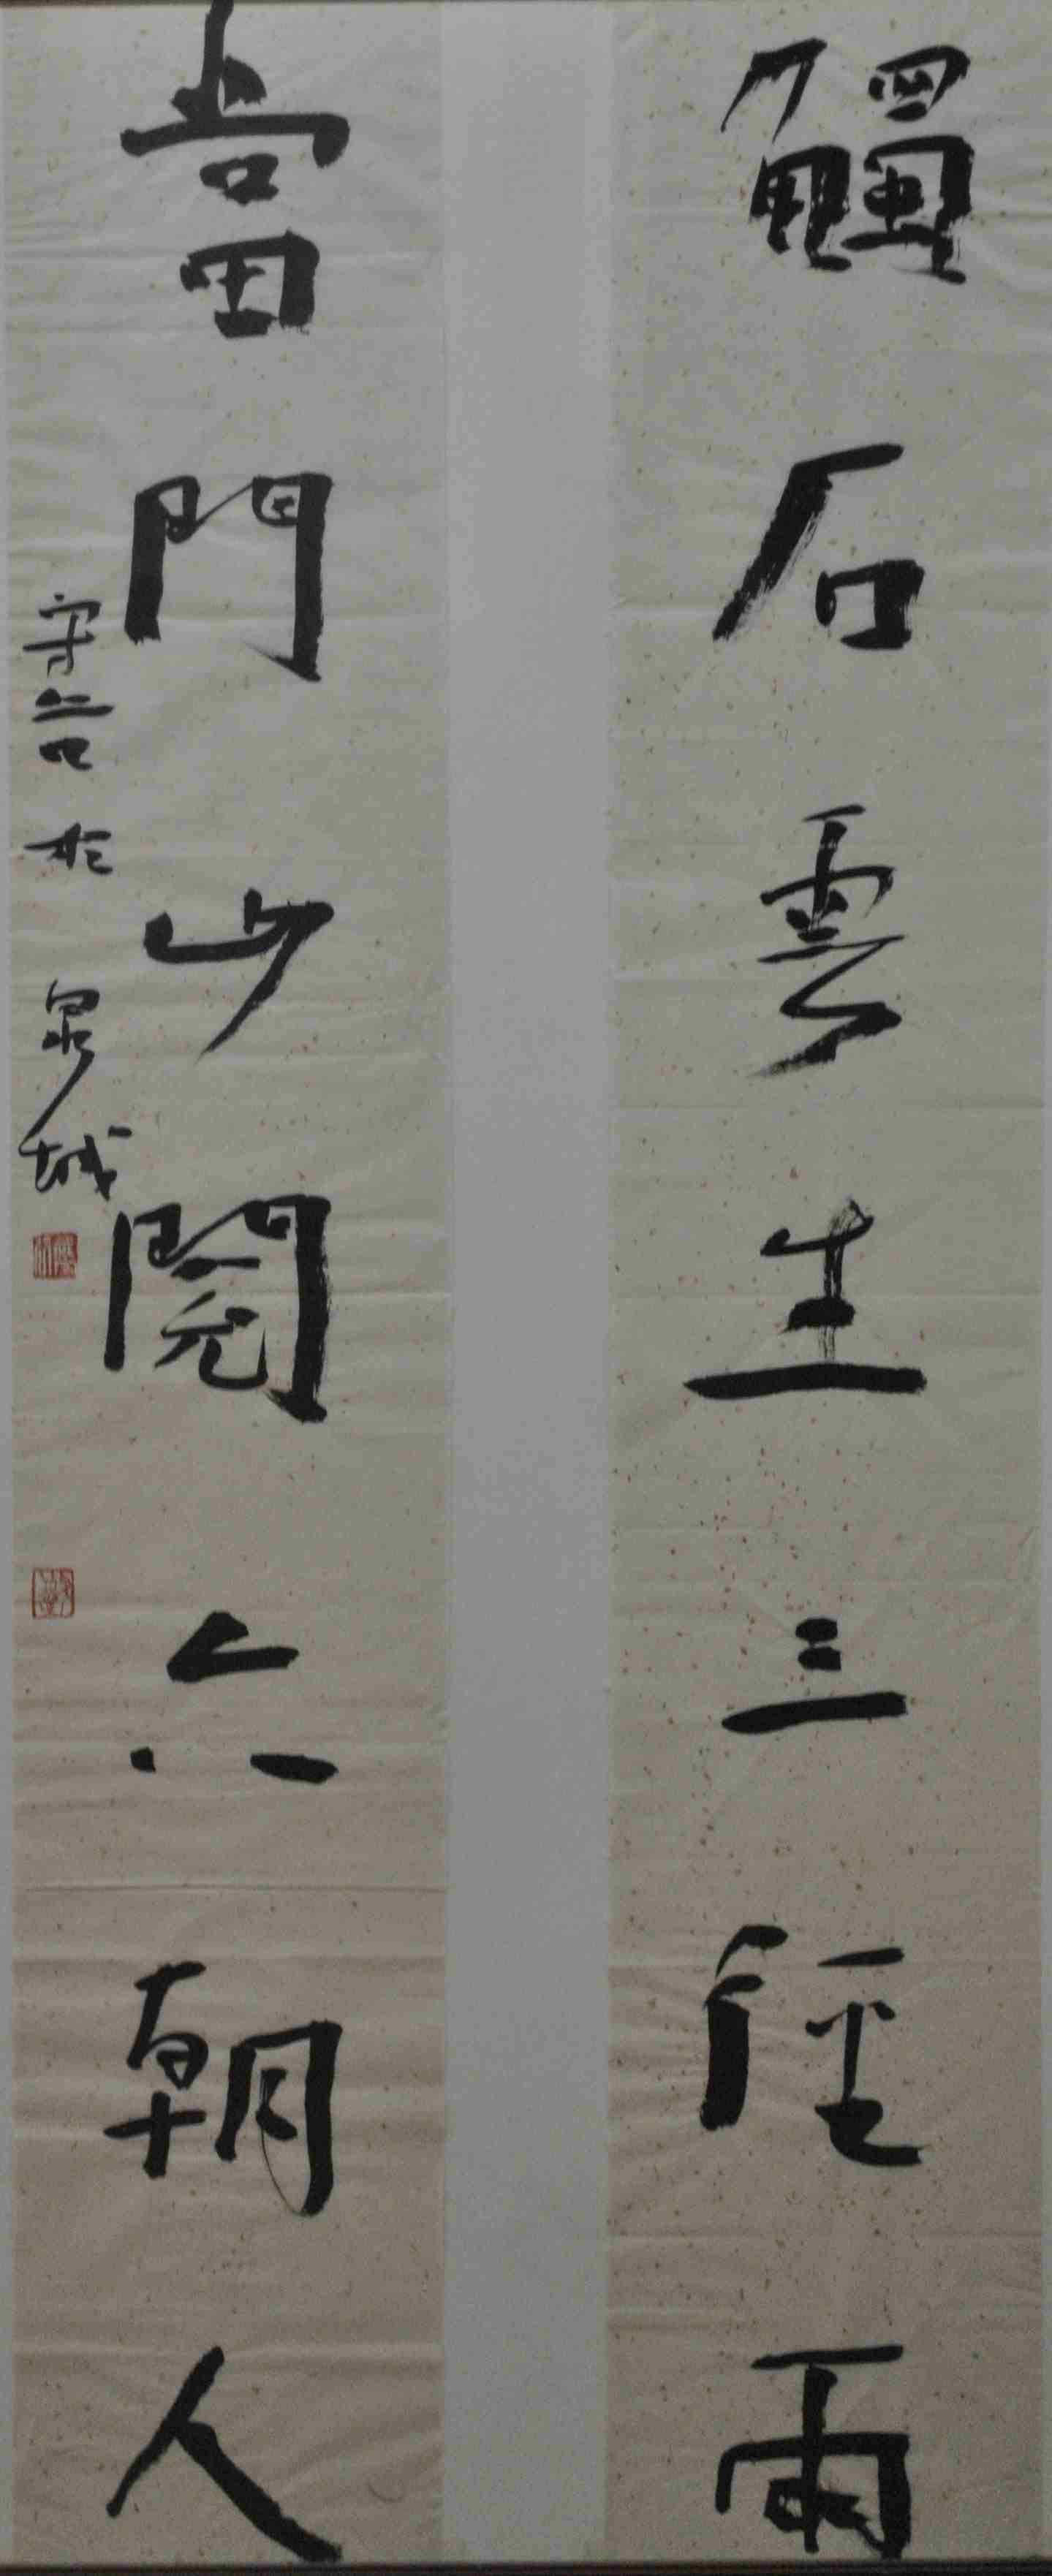 觸石雲生三徑雨
當門山閱六朝人
守言於泉城